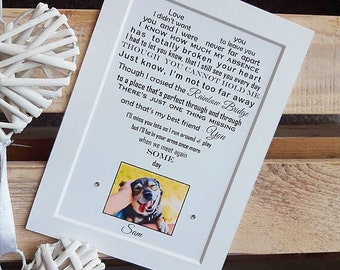 Love you
I didn't want to leave you
you and I were never far apart
I KNOW HOW MUCH MY ABSENCE
has totally broken your heart
I had to let you know, that I still see you every day
THOUGH YOU CANNOT HOLD ME
Just know, I'm not too far away
Though I crossed the Rainbow Bridge
to a place that's perfect through and through
THERE'S JUST ONE THING MISSING
and that's my best friend You
I'll miss you lots as I run around & play
but I'll be in your arms once more
when we meet again
SOME
day
Sam